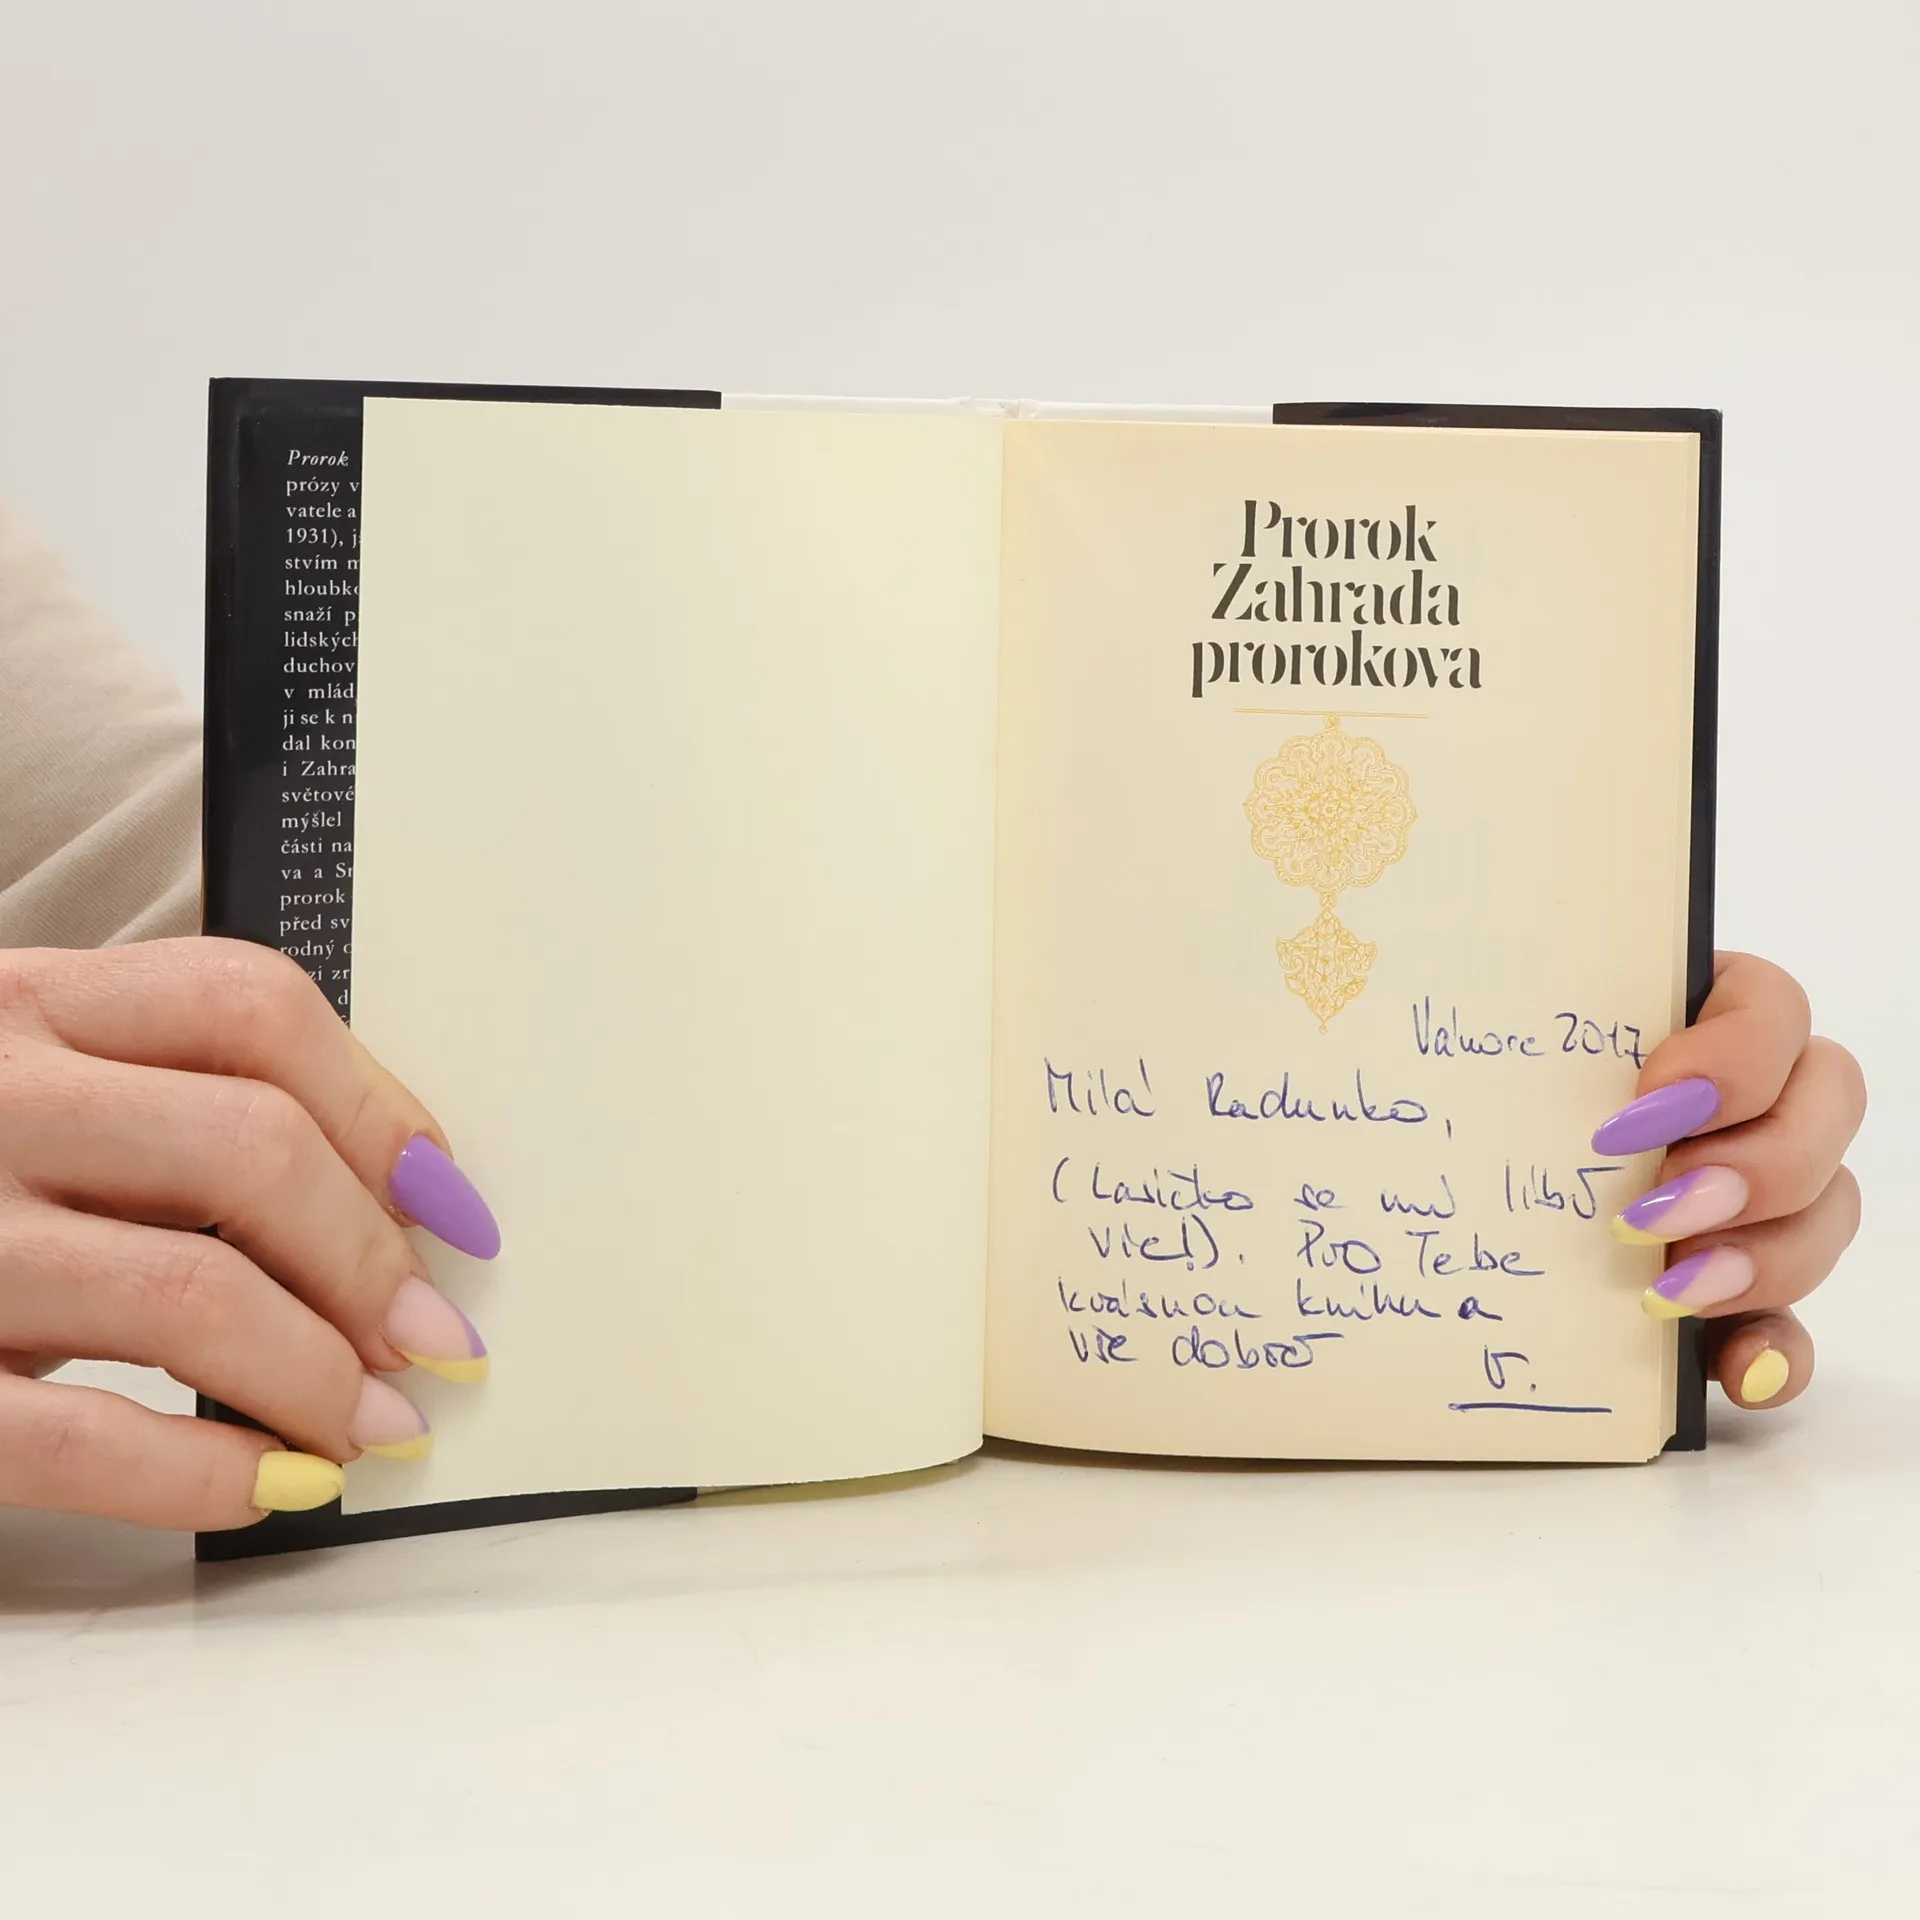 Prorok
prózy v
vatele a
1931), j
stvím m
hloubk
snaží p
lidských
duchov
v mlád
ji se k n
dal kon
i Zahra
světové
mýšlel
části na
va a Sr
prorok
před sv
rodný
zi zr
d
Prorok
Zahrada
prorokova
Vánoce 2017
Milá Radunko,
(Lasičko se mi líbí
více!). Pro Tebe
krásnou knihu a
vše dobré
V.